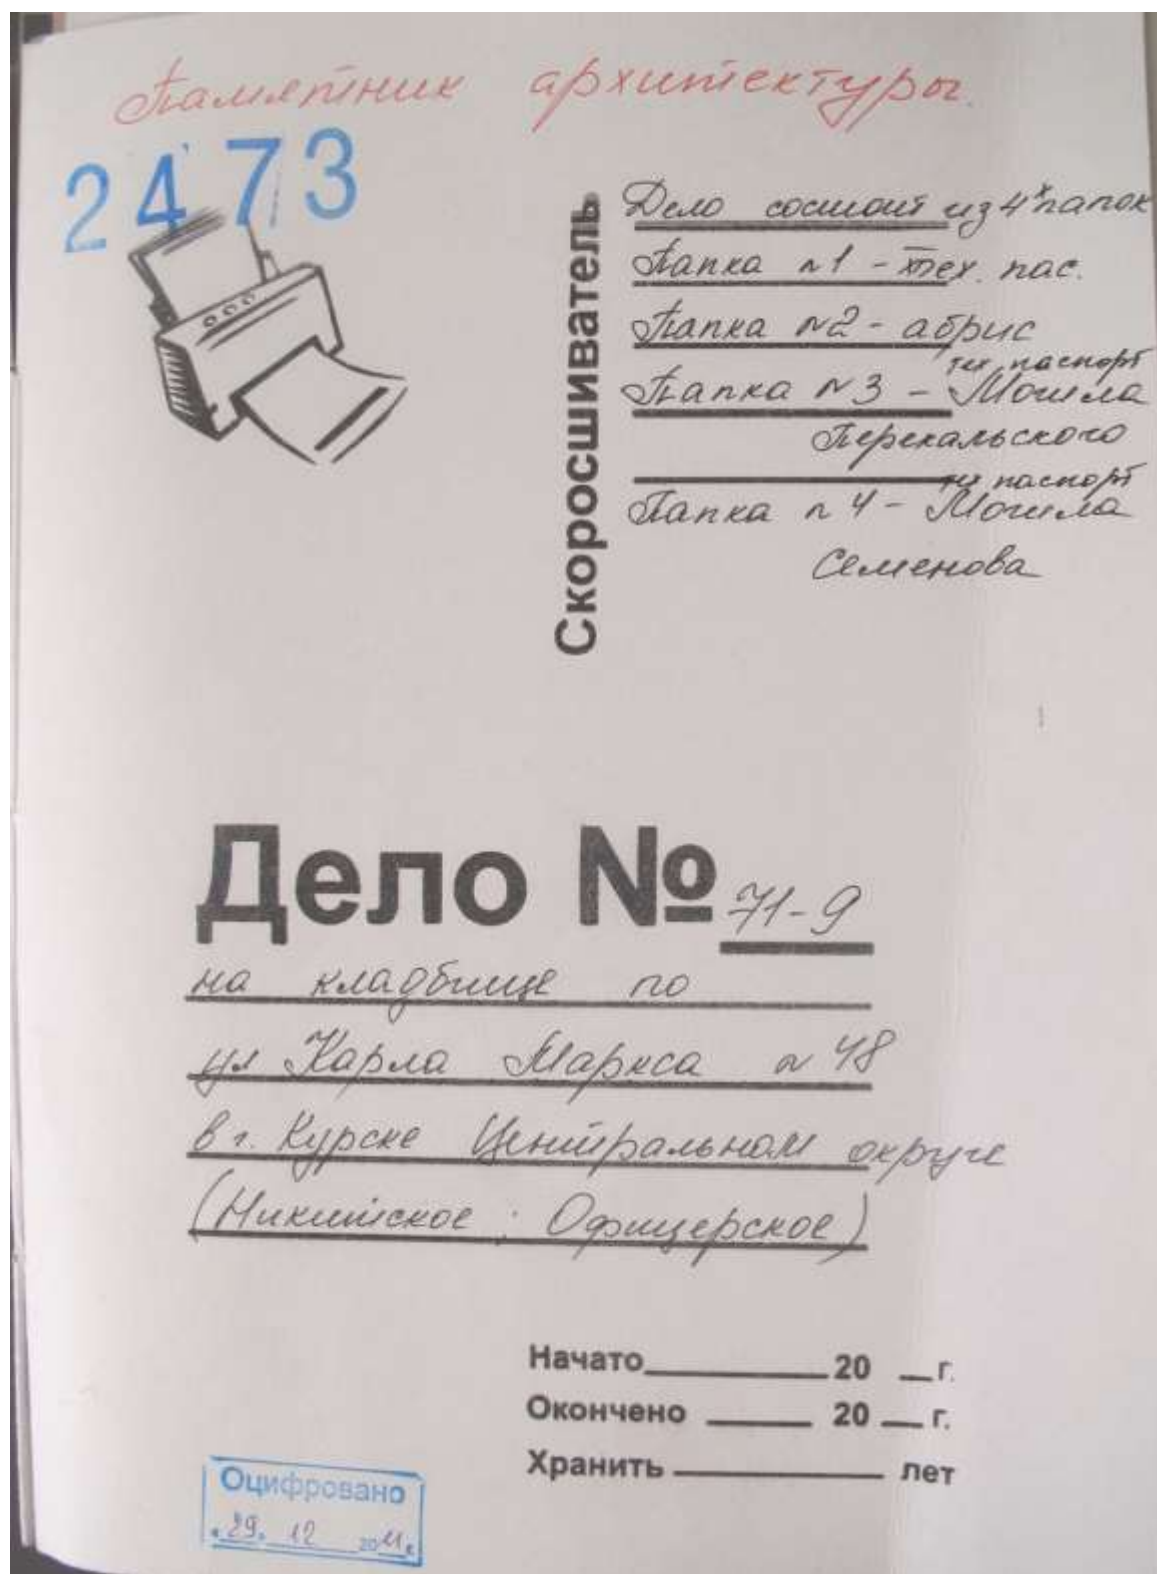 Памятник архитектуры.
2473
Скоросшиватель
Дело состоит из 4х папок
Папка №1 - тех. пас.
Папка №2 - абрис
тех паспорт
Папка №3 - Могила
Перекальского
тех паспорт
Папка №4 - Могила
Семенова
Дело № 71-9
на кладбище по
ул Карла Маркса №48
в г. Курске Центральном округе
(Никитское; Офицерское)
Начато 20 г.
Окончено 20 г.
Хранить лет
Оцифровано
«29» 12 2011 г.